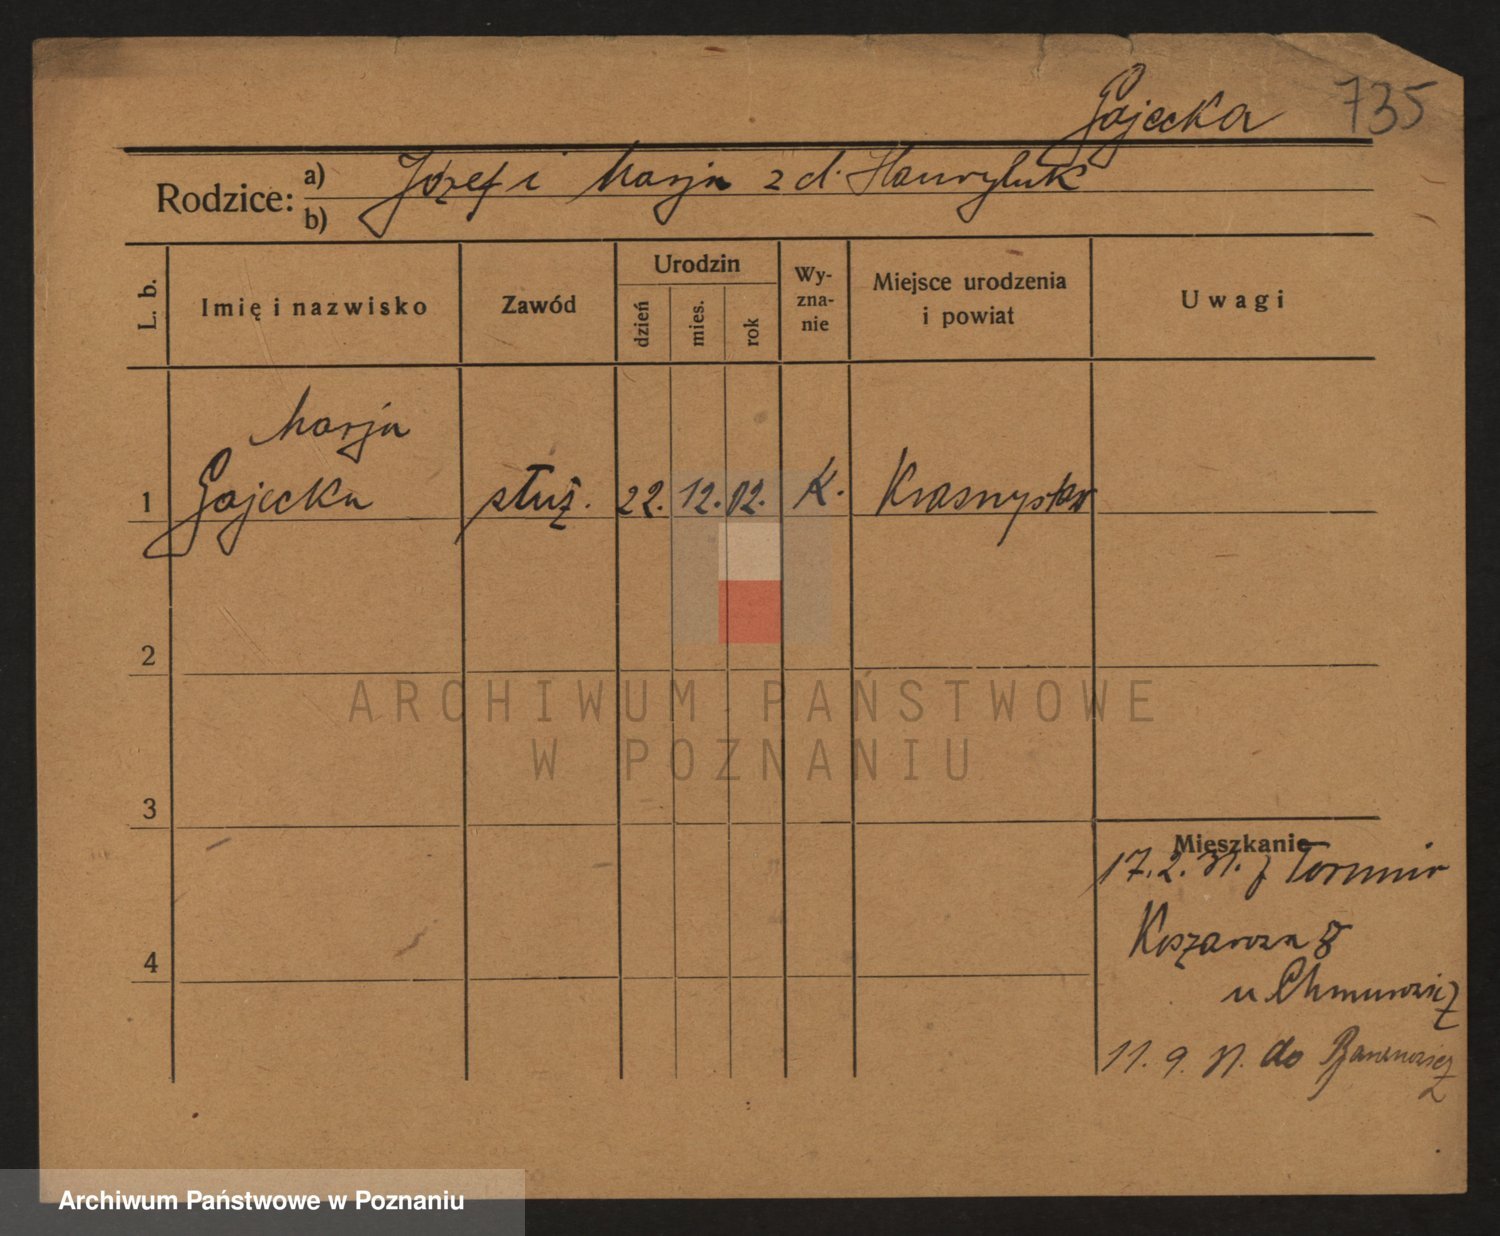 Gajecka 735
Rodzice: a) b) Józef i Marja z d. Hawryluk
L. b.
Imię i nazwisko
Zawód
Urodzin
dzień mies. rok
Wy-
zna-
nie
Miejsce urodzenia
i powiat
Uwagi
Marja
1 Gajecka służ. 22. 12. 02. K. Krasnystaw
2
3
4
Mieszkanie
17.2.31. z Torunia
Koszarowa 8
u Chmurowicz
11. 9. 31. do
ARCHIWUM PAŃSTWOWE
W POZNANIU
Archiwum Państwowe w Poznaniu